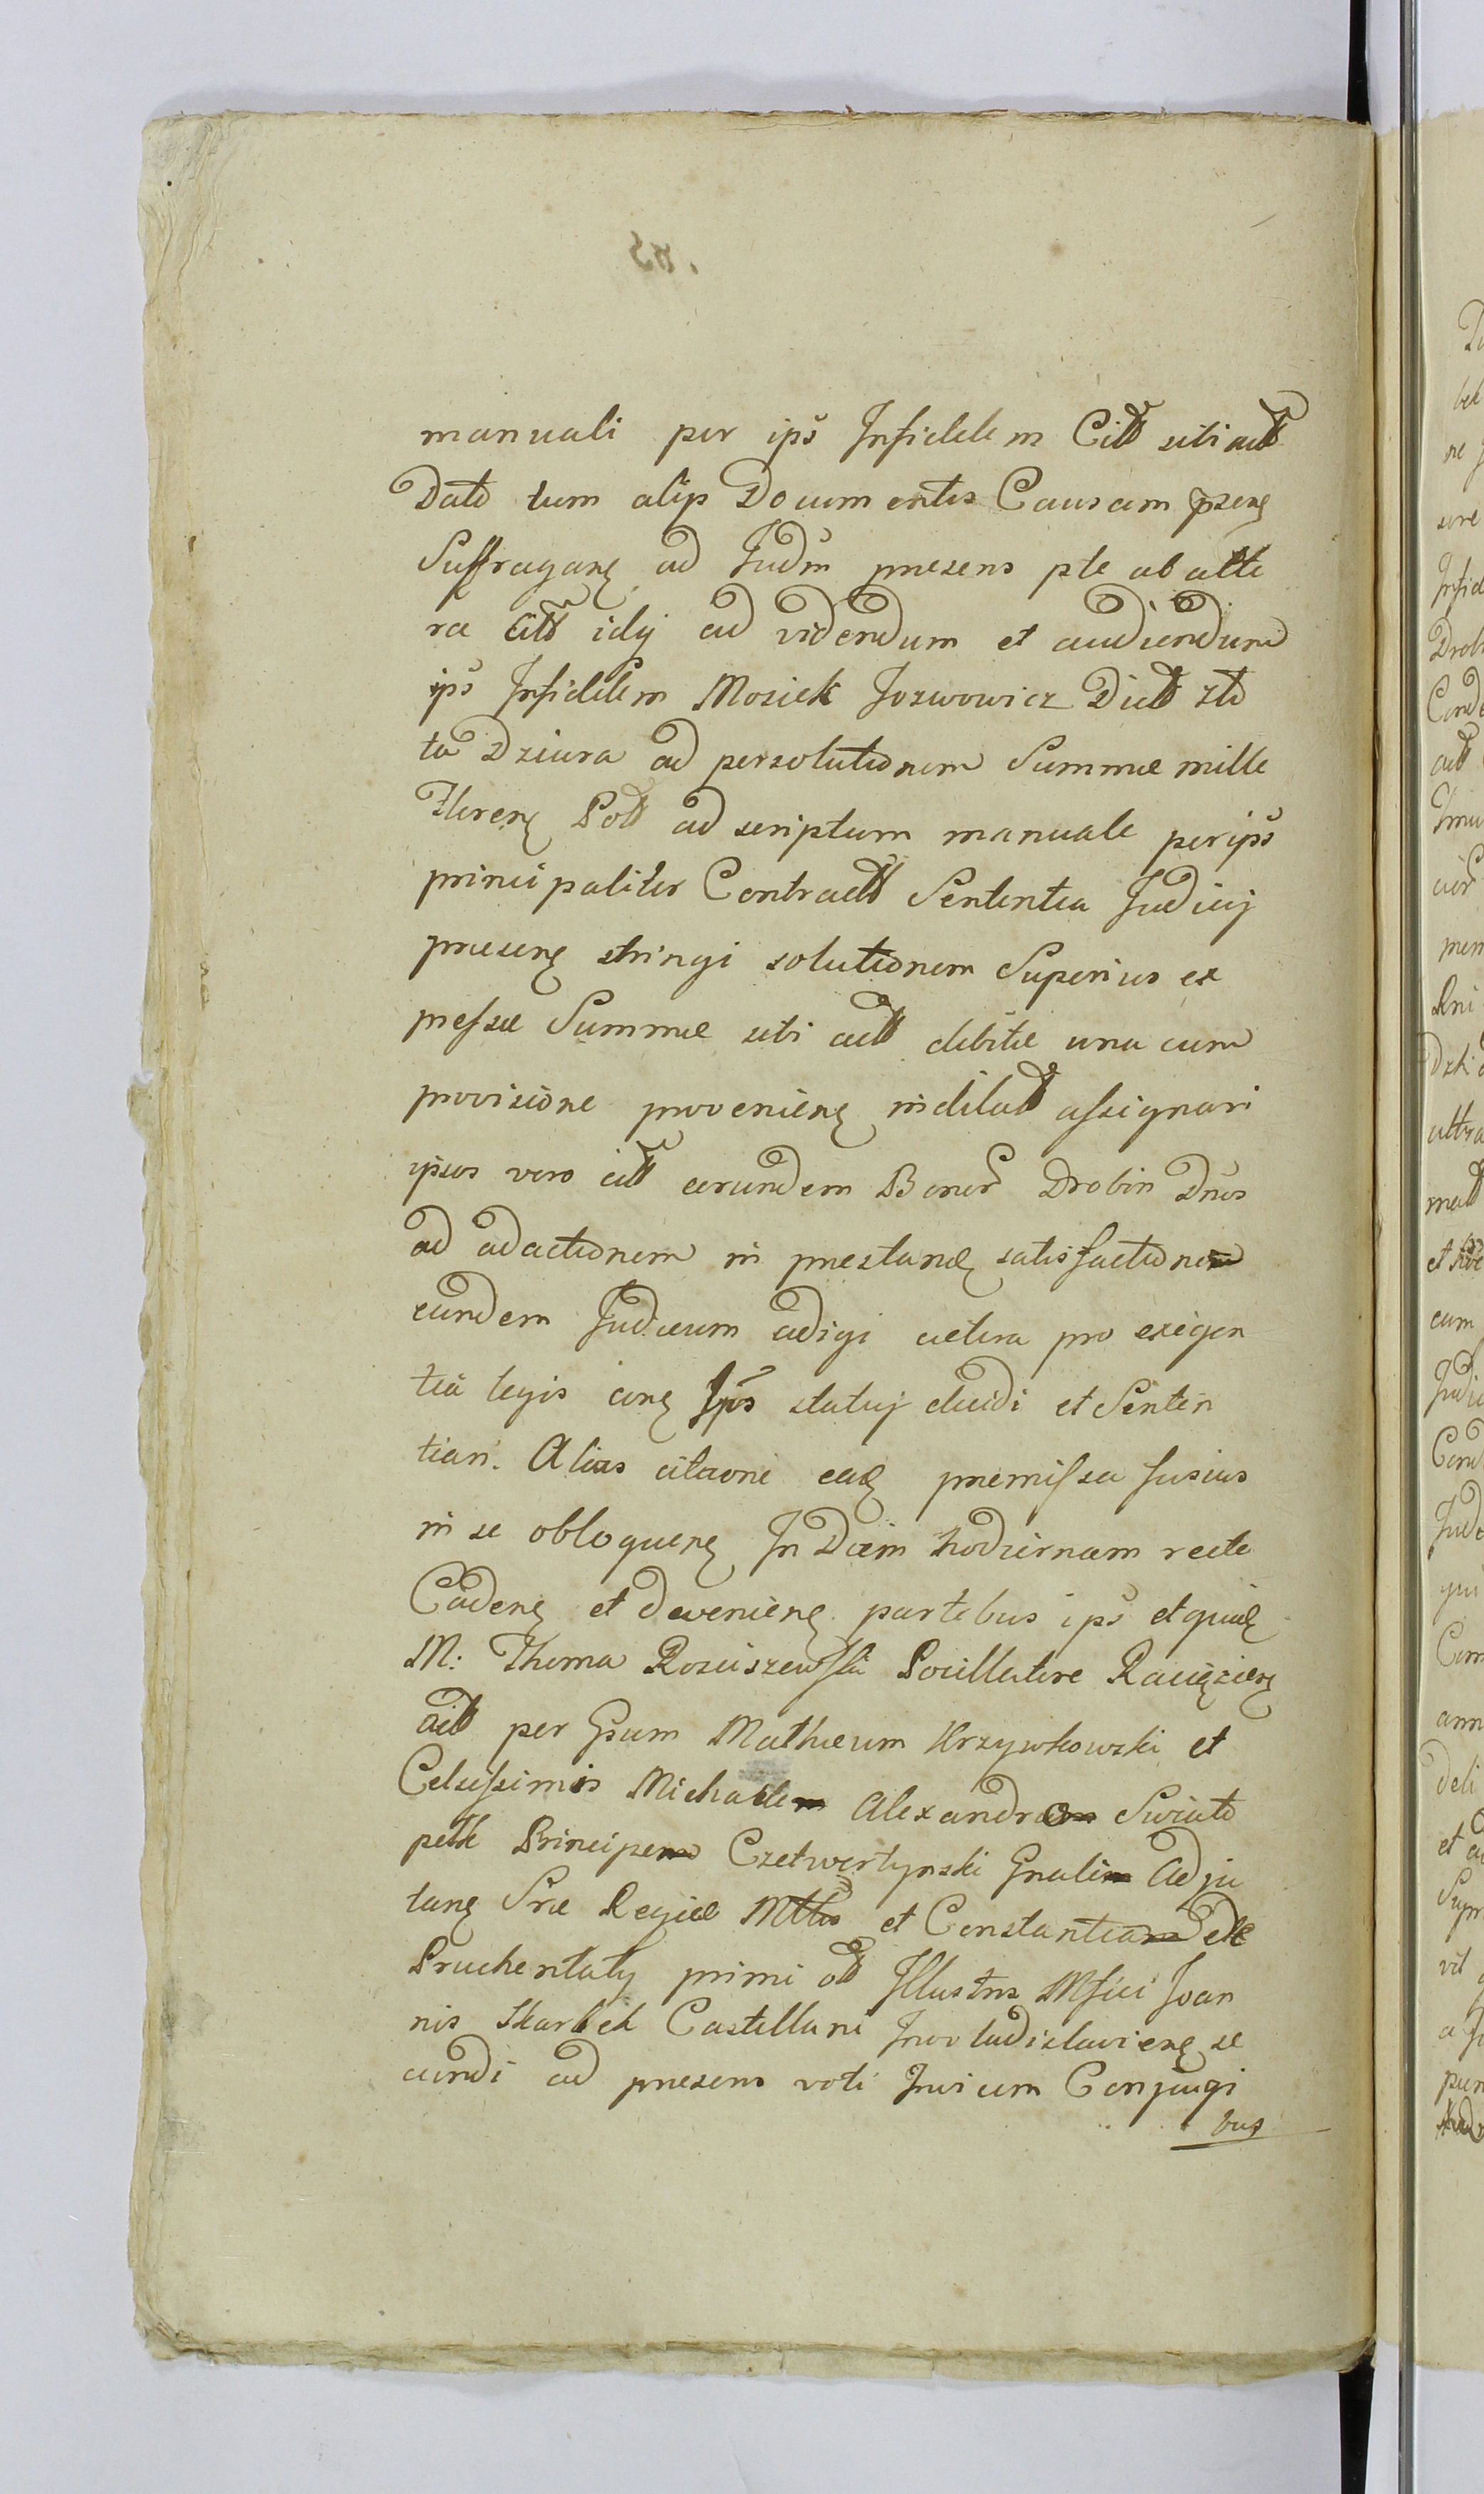 manuali per ips Infidelem Citt uti actt
Dato tum alijs Documentis Causam pzenę
Suffraganę ad Judm prezens pte ab alte
ra Citt idq ad videndum et audiendum
ips Infidelem Mosiek Jozwowicz Dictt zło
ta Dziura ad persolutionem Summæ mille
Florenę Poll ad scriptum manuale per ips
principaliter Contractt Sententia Judicij
præsenę stringi solutionem Superius ex
pressæ Summæ uti actt debitæ una cum
provisione provenienę indilatt assignari
ipsos vero citt eorundem Bonor Drobin Dnos
ad adactionem in præstandę satisfactionem
eundem Judæum adigi cætera pro exigen
tia legis conę Ips statuj decidi et Senten
tiari. Alias citaoni eadę præmissa fusius
in se obloquenę In Diem hodiernam recte
Cadenę et devenienę partibus ips et quidę
M: Thoma Rosciszewski Pocillatore Raciązienę
actt per Gsum Mathæum Krzywkowski et
Celsissimis Michaele Alexandro Swiato
pełk Principe Czetwertynski Gnali Adju
tanę Sræ Regiæ Mttis et Constantia de
Pruchentaly primi ott Illustris Mfici Joan
nis Skarbek Castellani Inovladislavienę se
cundi ad præsens voti Invicem Conjugi
bus